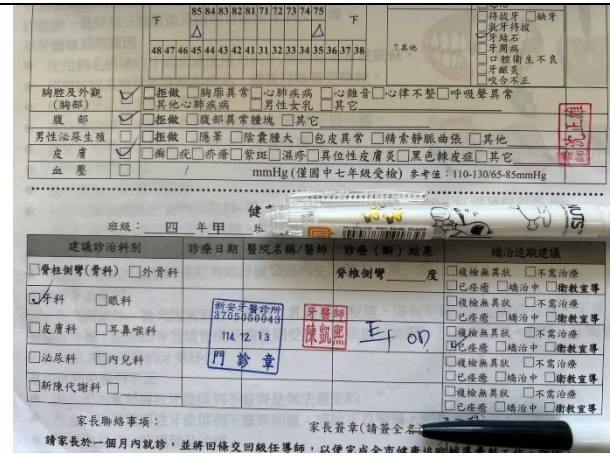 85 84 83 82 81 71 72 73 74 75
下 下
48 47 46 45 44 43 42 41 31 32 33 34 35 36 37 38
7.其他
□待拔牙 □缺牙
□乳牙待拔
牙結石
□牙周病
□口腔衛生不良
□牙齦炎
□咬合不正
胸腔及外觀(胸部) □拒做 □胸廓異常 □心肺疾病 □心雜音 □心律不整 □呼吸聲異常
□其他心肺疾病 □男性女乳 □其它
腹部 □拒做 □腹部異常腫塊 □其它
男性泌尿生殖 □ □拒做 □隱睪 □陰囊腫大 □包皮異常 □精索靜脈曲張 □其他
皮膚 □癬 □疣 □疥瘡 □紫斑 □濕疹 □異位性皮膚炎 □黑色棘皮症 □其它
血壓 □ / mmHg (僅國中七年級受檢) 參考值：110-130/65-85mmHg
健
班級： 四 年甲 班
建議診治科別 診療日期 醫院名稱/醫師 診療(斷)結果 矯治追蹤建議
□脊柱側彎(骨科) □外骨科 脊椎側彎 度 □複檢無異狀 □不需治療
□已痊癒 □矯治中 □衛教宣導
牙科 □眼科 □複檢無異狀 □不需治療
□已痊癒 □矯治中 □衛教宣導
新安牙醫診所
3705050043
114. 12. 13
門診章
牙醫師
陳凱熙
□皮膚科 □耳鼻喉科 □複檢無異狀 □不需治療
已痊癒 □矯治中 □衛教宣導
□泌尿科 □內兒科 □複檢無異狀 □不需治療
□已痊癒 □矯治中 □衛教宣導
□新陳代謝科 □ □複檢無異狀 □不需治療
□已痊癒 □矯治中 □衛教宣導
家長聯絡事項： 家長簽章(請簽全名
請家長於一個月內就診，並將回條交回級任導師，以便完成全市健康追蹤